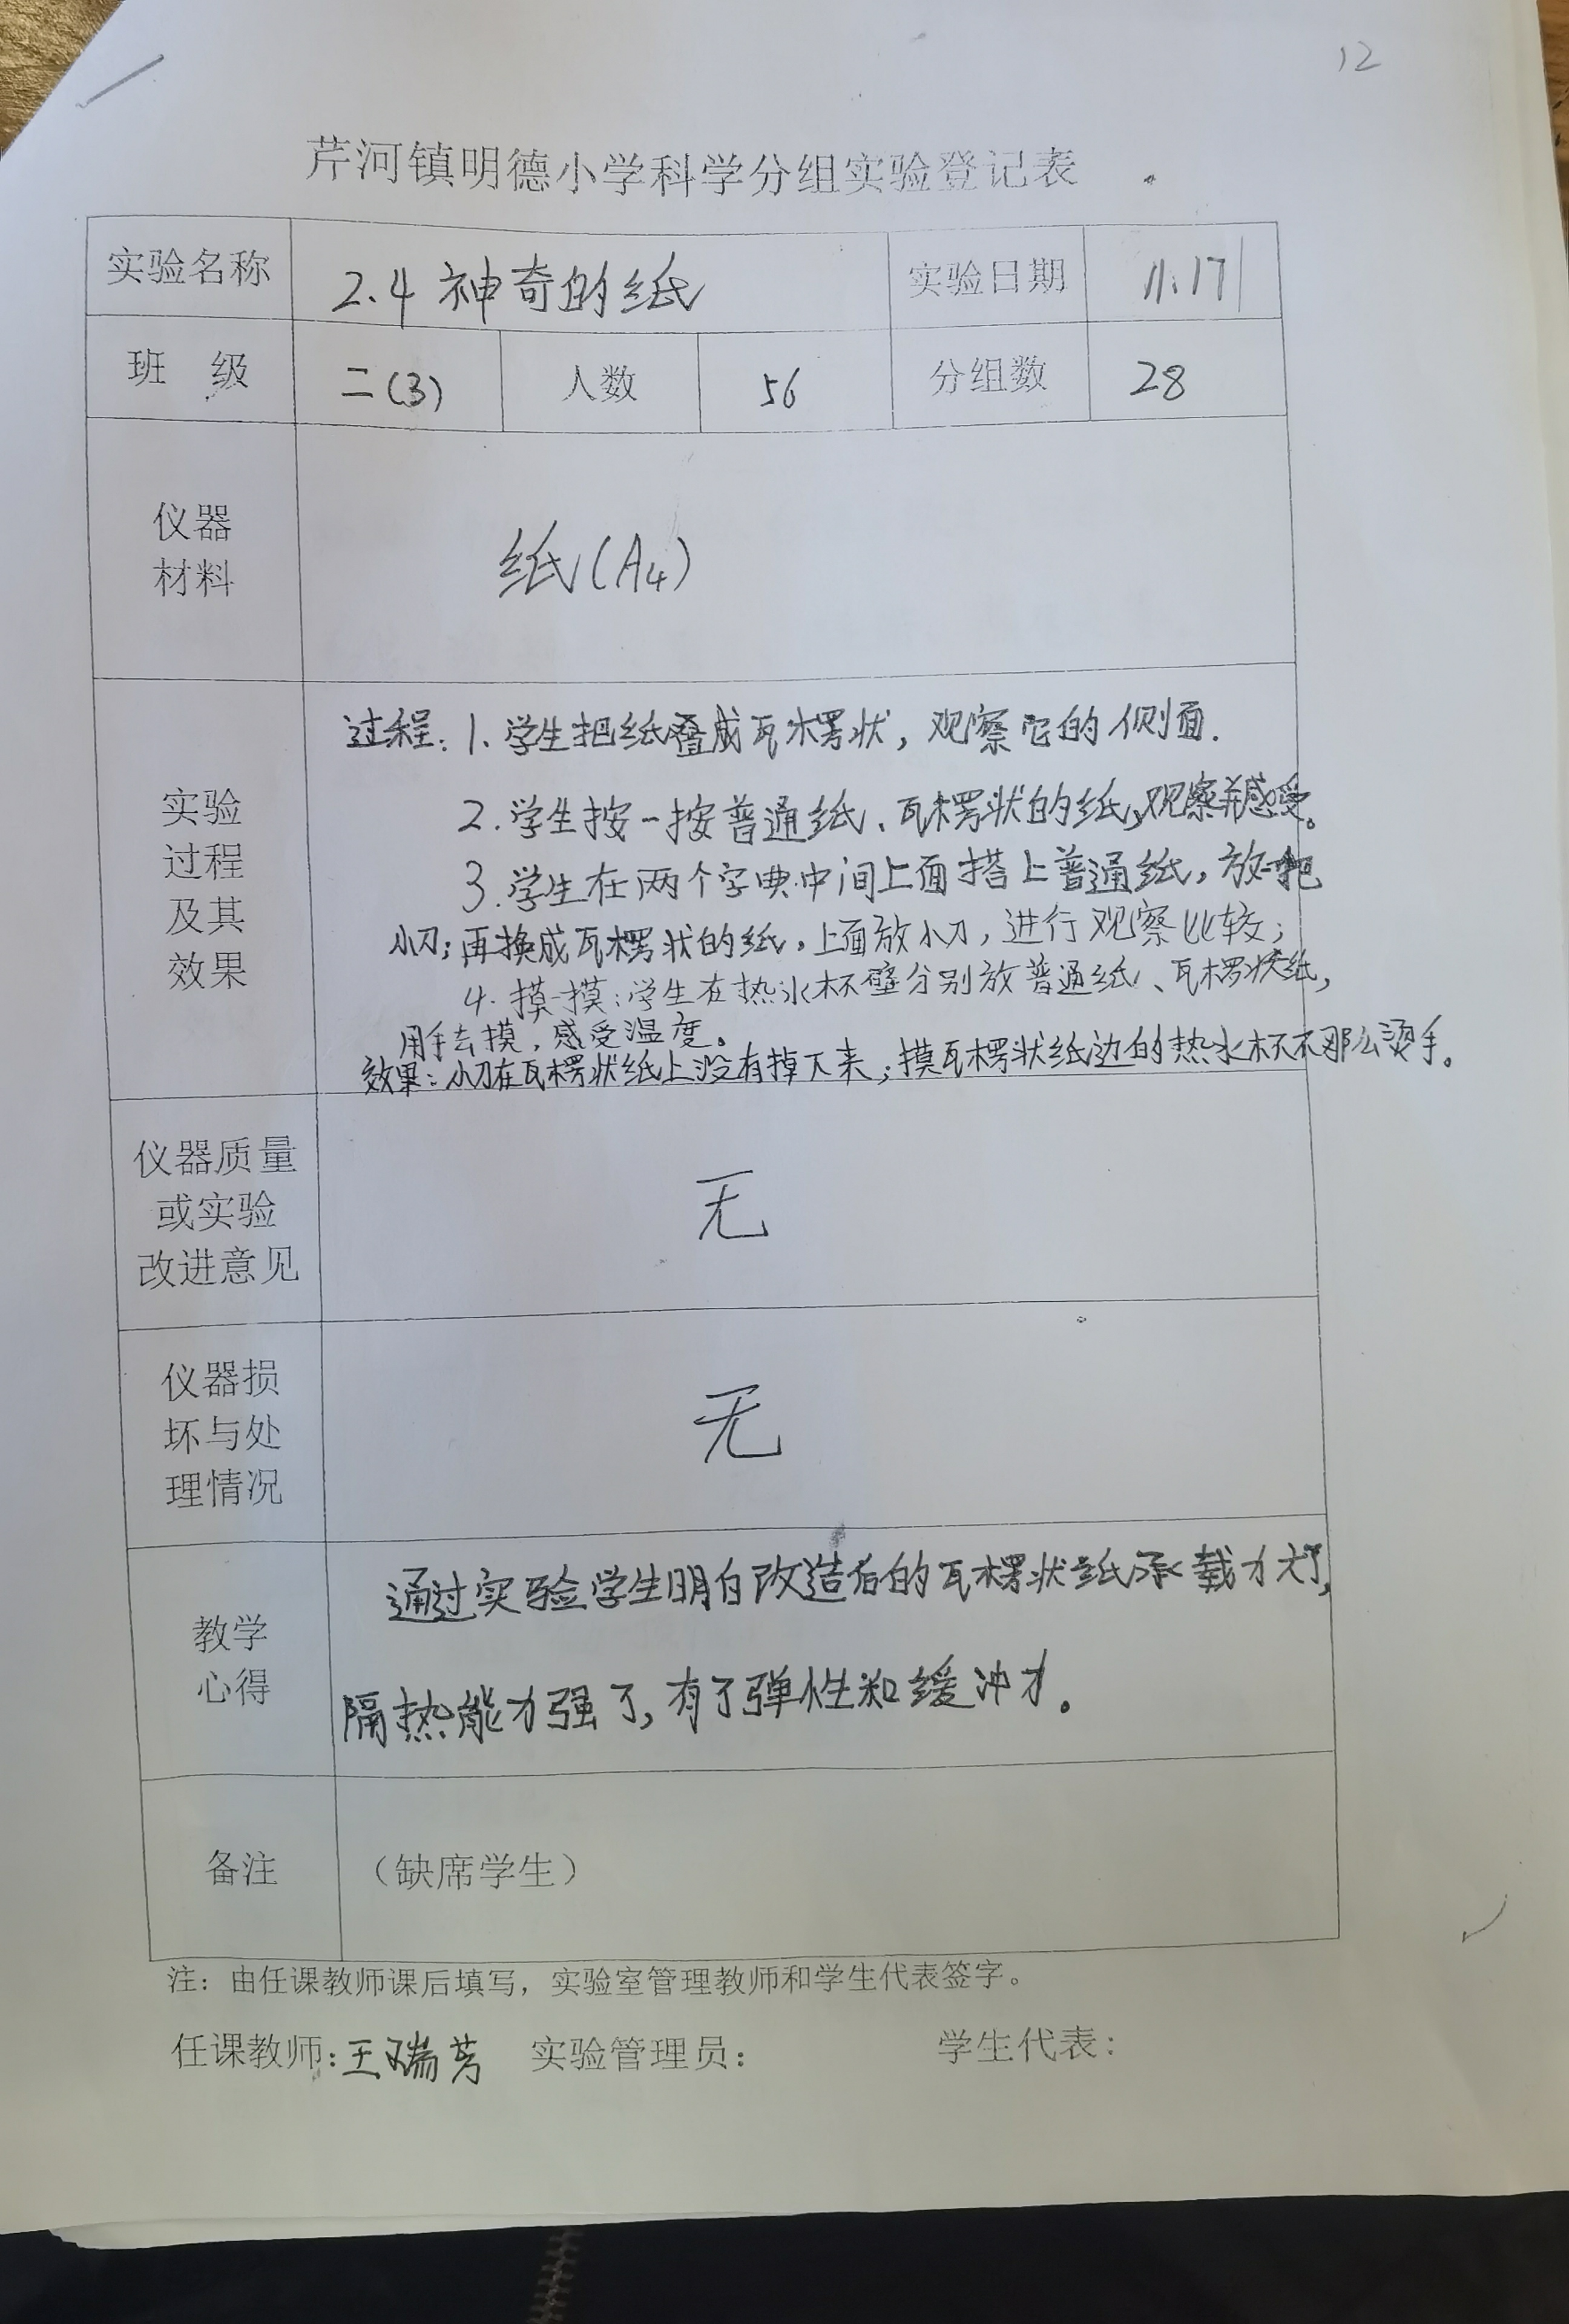 12
芹河镇明德小学科学分组实验登记表
实验名称 2.4 神奇的纸 实验日期 11.17
班 级 二(3) 人数 56 分组数 28
仪器
材料
纸(A4)
实验
过程
及其
效果
过程: 1. 学生把纸叠成瓦楞状, 观察它的侧面.
2. 学生按一按普通纸、瓦楞状的纸,观察并感受。
3. 学生在两个字典中间上面搭上普通纸, 放一把
小刀; 再换成瓦楞状的纸, 上面放小刀, 进行观察比较;
4. 摸一摸: 学生在热水杯壁分别放普通纸、瓦楞状纸,
用手去摸, 感受温度。
效果: 小刀在瓦楞状纸上没有掉下来; 摸瓦楞状纸边的热水杯不那么烫手。
仪器质量
或实验
改进意见
无
仪器损
坏与处
理情况
无
教学
心得
通过实验学生明白改造后的瓦楞状纸承载力大了,
隔热能力强了, 有了弹性和缓冲力。
备注 (缺席学生)
注: 由任课教师课后填写, 实验室管理教师和学生代表签字。
任课教师: 王瑞芳 实验管理员: 学生代表: